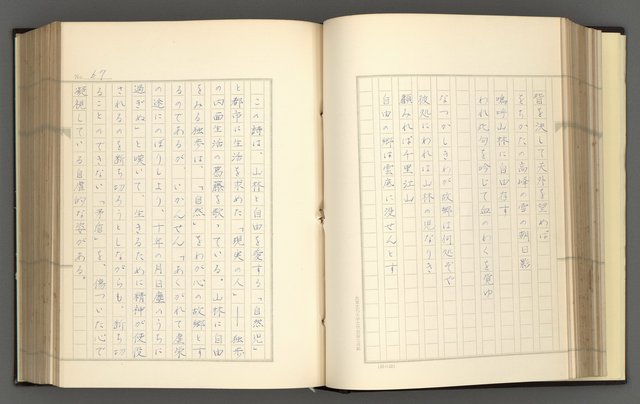 眥を決して天外を望めば
をちかたの高峰の雪の朝日影
嗚呼山林に自由存す
われ此句を吟じて血のわくを覚ゆ
なつかしきわが故郷は何処ぞや
彼処にわれは山林の児なりき
顧みれば千里江山
自由の郷は雲底に没せんとす
No. 67
この詩は、山林と自由を愛する「自然児」
と都市に生活を求めた「現実の人」――独歩
の内面生活の葛藤を歌っている。山林に自由
をみる独歩は、「自然」をわが心の故郷とす
るのであるが、いかんせん「あくがれて虚栄
の途にのぼりしより、十年の月日塵のうちに
過ぎぬ」と嘆いて、生きるために精神が使役
されるのを断ち切ろうとしながらも、断ち切
ることのできない「矛盾」を、傷ついた心で
凝視している自虐的な姿がある。